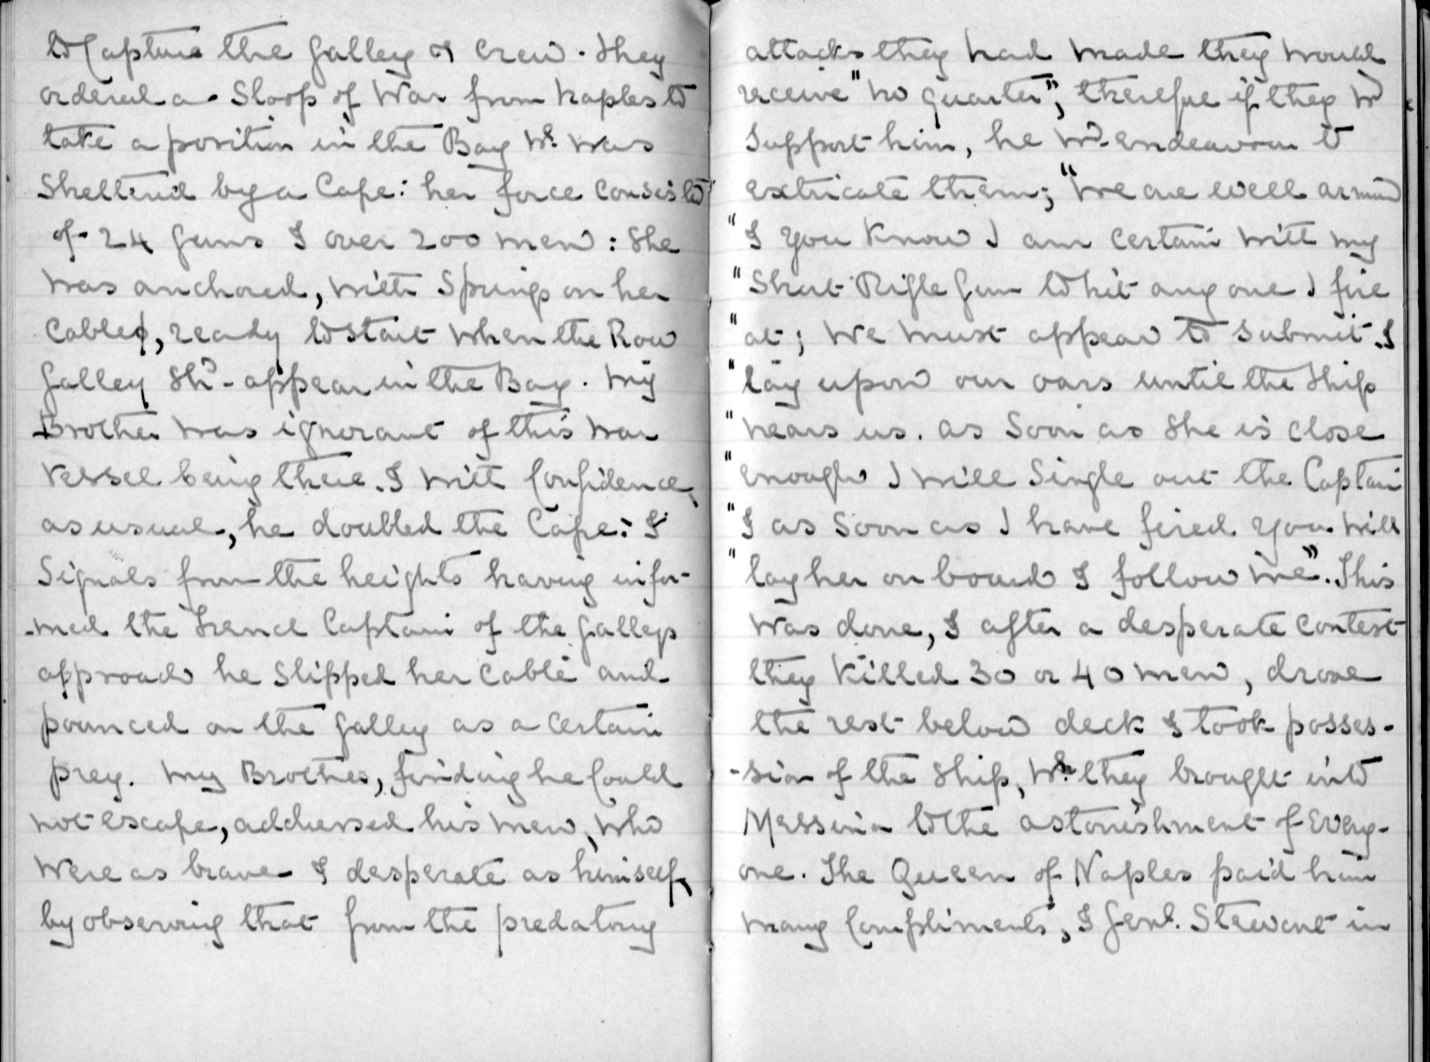 to Capture the Galley & Crew. They
ordered a Sloop of War from Naples to
take a position in the Bay wh. was
Sheltered by a Cape: her force consisted
of 24 Guns & over 200 men: She
was anchored, with Springs on her
Cables, ready to start when the Row
Galley shd. appear in the Bay. My
Brother was ignorant of this war
vessel being there. & with Confidence,
as usual, he doubled the Cape: &
Signals from the heights having infor-
-med the French Captain of the Galleys
approach he slipped her Cable and
pounced on the Galley as a certain
prey. My Brother, finding he could
not escape, addressed his men, who
were as brave & desperate as himself,
by observing that from the predatory
attacks they had made they would
receive "no quarter", therefore if they wd
Support him, he wd. endeavour to
extricate them; "We are well armed
"& you know I am certain with my
"Short Rifle Gun to hit any one I fire
"at; we must appear to submit. &
"lay upon our oars until the Ship
"nears us. as soon as she is close
"enough I will Single out the Captain
"& as soon as I have fired you will
"lay her on board & follow me". This
was done, & after a desperate contest
they killed 30 or 40 men, drove
the rest below deck & took posses-
-sion of the Ship, wh. they brought into
Messina to the astonishment of Every-
one. The Queen of Naples paid him
many Compliments, & Genl. Stewart in